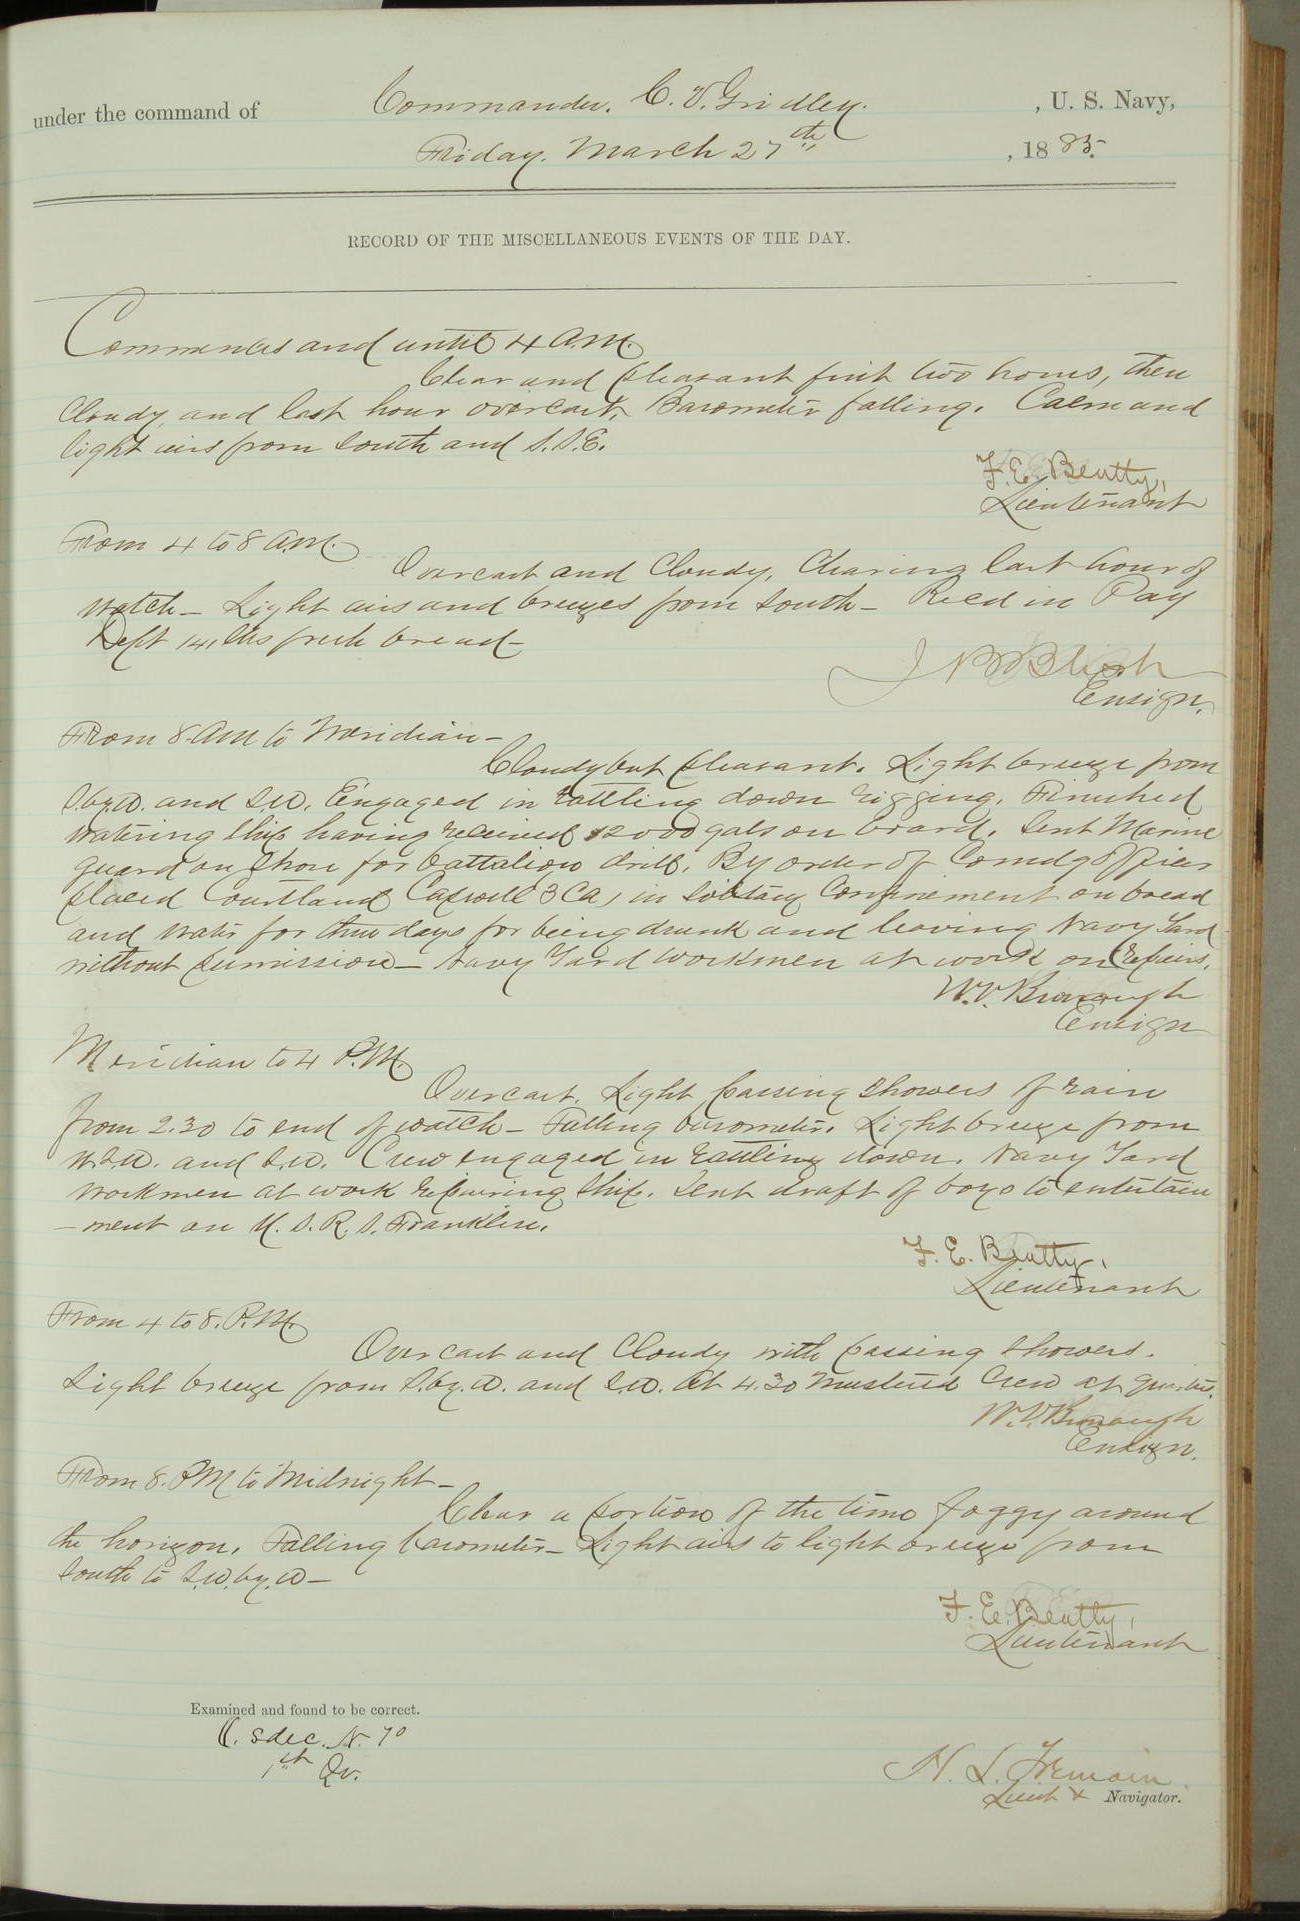 under the command of Commander. C. V. Gridley. , U. S. Navy,
Friday. March 27th , 1885.
RECORD OF THE MISCELLANEOUS EVENTS OF THE DAY.
Commences and until 4 A.M.
Clear and pleasant first two hours, then
Cloudy, and last hour overcast. Barometer falling. Calm and
light airs from South and S.S.E.
F. E. Beatty,
Lieutenant
From 4 to 8 A.M.
Overcast and Cloudy, Clearing last hour of
watch — Light airs and breezes from South — Recd in Pay
Dept 141 lbs fresh bread —
J B Blish
Ensign.
From 8. AM to Meridian —
Cloudy but pleasant. Light breeze from
S.by.W. and S.W. Engaged in rattling down rigging. Finished
watering ship having received 12000 gals on board. Sent Marine
guard on shore for battalion drill. By order of Comdg Officer
placed Courtland Caswell 3 Ca, in solitary Confinement on bread
and water for three days for being drunk and leaving Navy Yard
without permission — Navy Yard workmen at work on repairs.
W. V. Bronaugh
Ensign
Meridian to 4 P.M.
Overcast. Light passing showers of rain
from 2.30 to end of watch — Falling barometer. Light breeze from
W.S.W. and S.W. Crew engaged in rattling down. Navy Yard
workmen at work repairing ship. Sent draft of boys to entertain
- ment on U. S. R. S. Franklin.
F. E. Beatty,
Lieutenant
From 4 to 8. P.M.
Overcast and Cloudy with passing showers.
Light breeze from S.by.W. and S.W. At 4.30 Mustered Crew at quarters.
W. V. Bronaugh
Ensign.
From 8. PM to Midnight —
Clear a portion of the time foggy around
the horizon. Falling barometer — Light airs to light breeze from
South to S.W.by.W —
F. E. Beatty,
Lieutenant
Examined and found to be correct.
H. L. Tremain
Lieut & Navigator.